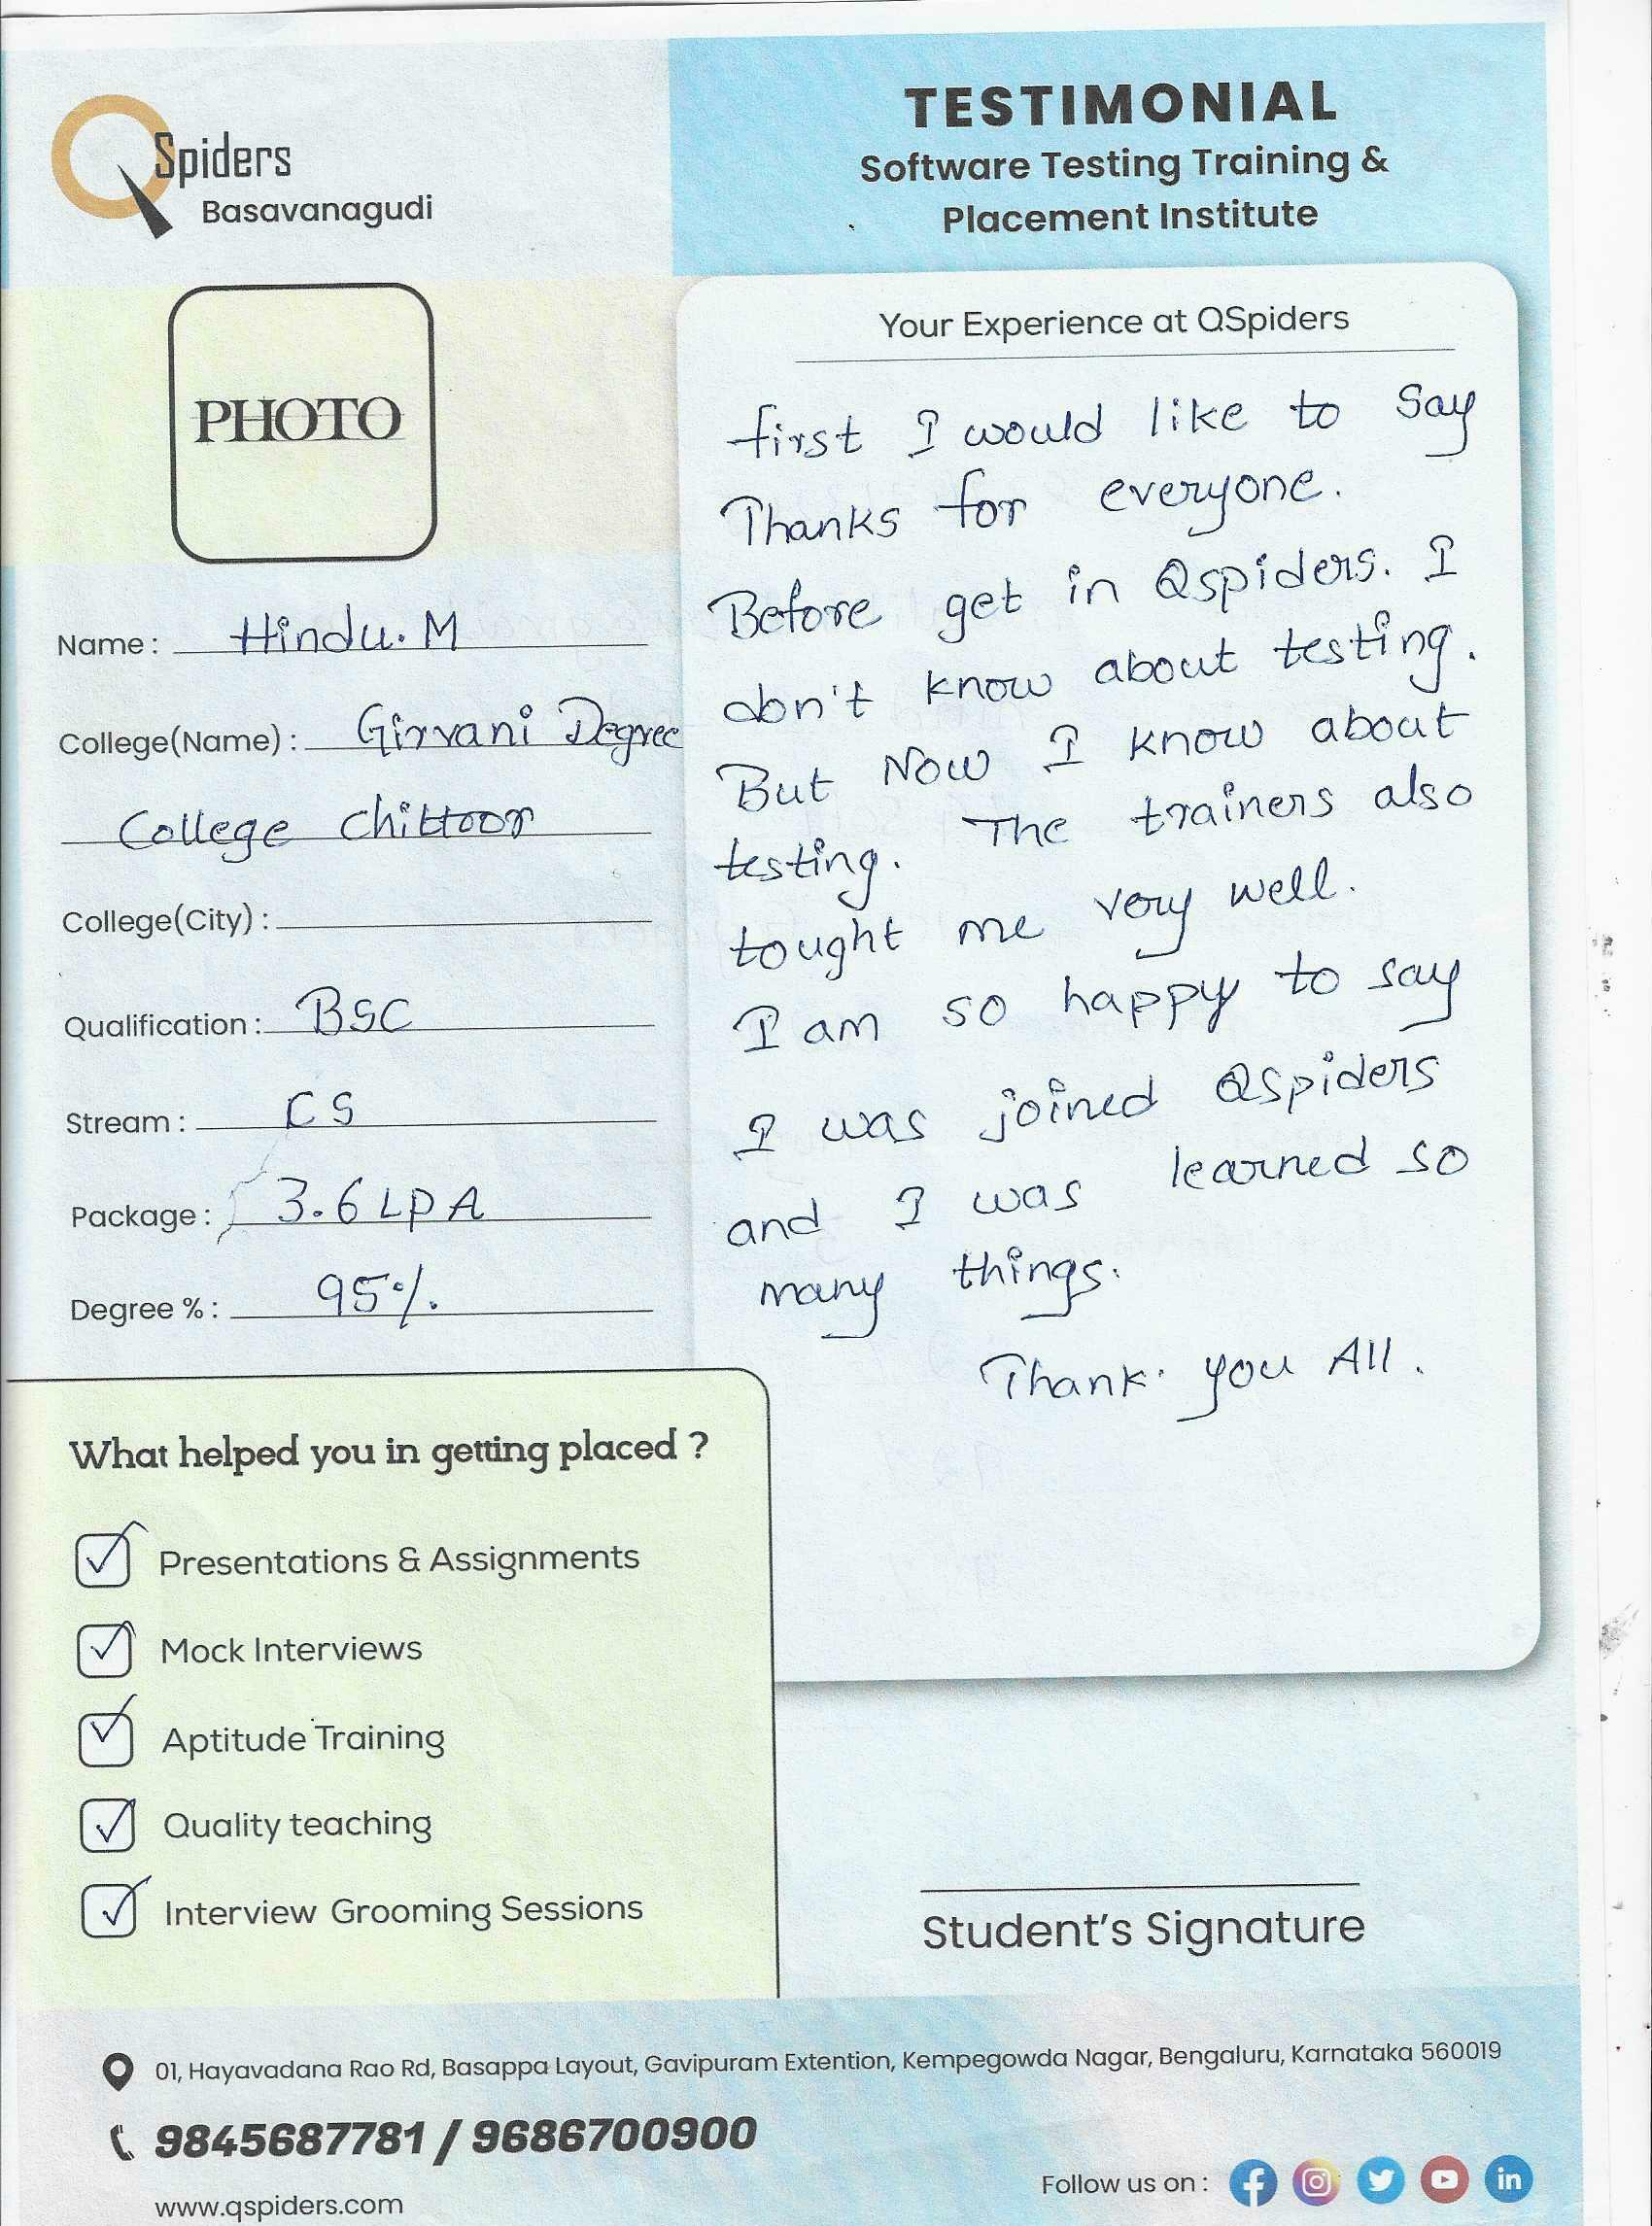 QSpiders
Basavanagudi
TESTIMONIAL
Software Testing Training &
Placement Institute
PHOTO
Name : Hindu. M
College(Name) : Girvani Degree
College Chittoor
College(City) :
Qualification : BSC
Stream : CS
Package : 3.6 LPA
Degree % : 95%.
Your Experience at QSpiders
first I would like to Say
Thanks for everyone.
Before get in Qspiders. I
don't know about testing.
But Now I know about
testing. The trainers also
tought me very well.
I am so happy to say
I was joined Qspiders
and I was learned so
many things.
Thank you All.
What helped you in getting placed ?
Presentations & Assignments
Mock Interviews
Aptitude Training
Quality teaching
Interview Grooming Sessions
Student's Signature
01, Hayavadana Rao Rd, Basappa Layout, Gavipuram Extention, Kempegowda Nagar, Bengaluru, Karnataka 560019
9845687781 / 9686700900
www.qspiders.com
Follow us on :